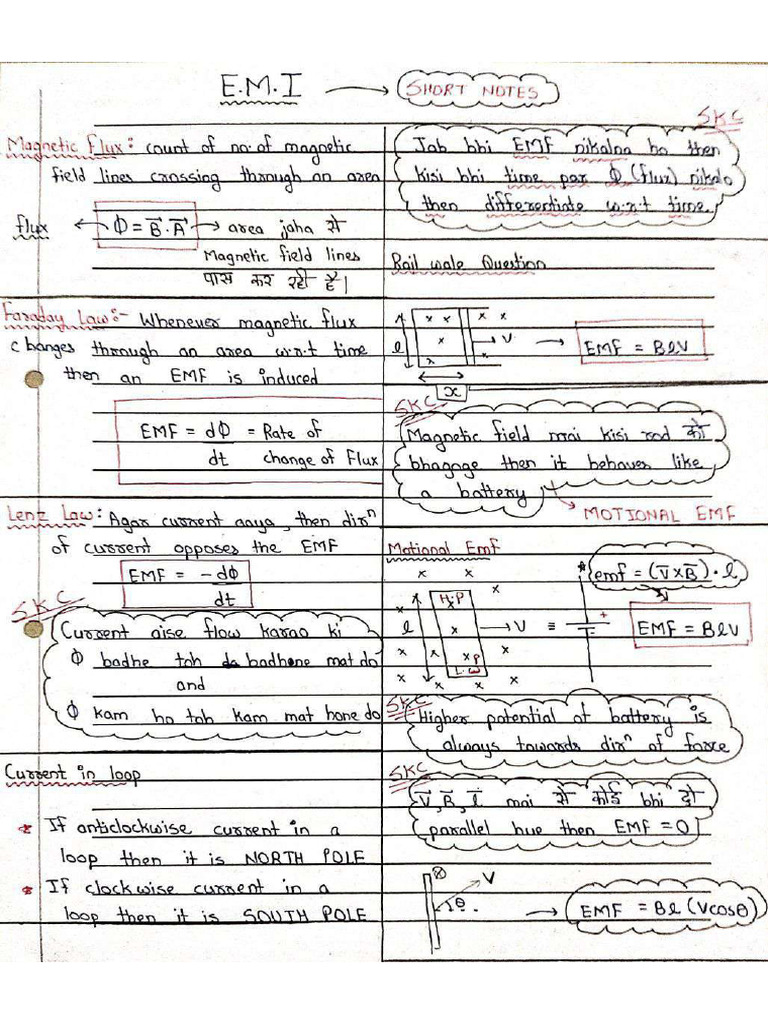 E.M.I → SHORT NOTES
SKC
Magnetic Flux: count of no. of magnetic
field lines crossing through an area
flux ← Φ = B⃗.A⃗ → area jaha से
Magnetic field lines
पास कर रही है।
Faraday Law:- Whenever magnetic flux
changes through an area w.r.t time
then an EMF is induced
EMF = dΦ = Rate of
dt change of Flux
Lenz Law: Agar current aaya, then dirⁿ
of current opposes the EMF
EMF = -dΦ
dt
SKC
Current aise flow karao ki
Φ badhe toh badhone mat do
and
Φ kam ho toh kam mat hone do
Current in loop
* If anticlockwise current in a
loop then it is NORTH POLE
* If clockwise current in a
loop then it is SOUTH POLE
Jab bhi EMF nikalna ho then
kisi bhi time par Φ (flux) nikalo
then differentiate w.r.t time.
Rail wale Question
x x x x
l x → V → EMF = BlV
x
x
SKC
Magnetic field mai kisi rod को
bhagoge then it behaves like
a battery → MOTIONAL EMF
Motional Emf
emf = (V⃗×B⃗)·l
x x x
H.P x
l x → V ≡ + EMF = BlV
x x P x
L.W
x x x
SKC
Higher potential of battery is
always towards dirⁿ of force
SKC
V⃗, B⃗, l⃗ mai से कोई bhi दो
parallel hue then EMF = 0
⊗ V
θ → EMF = Bl (Vcosθ)